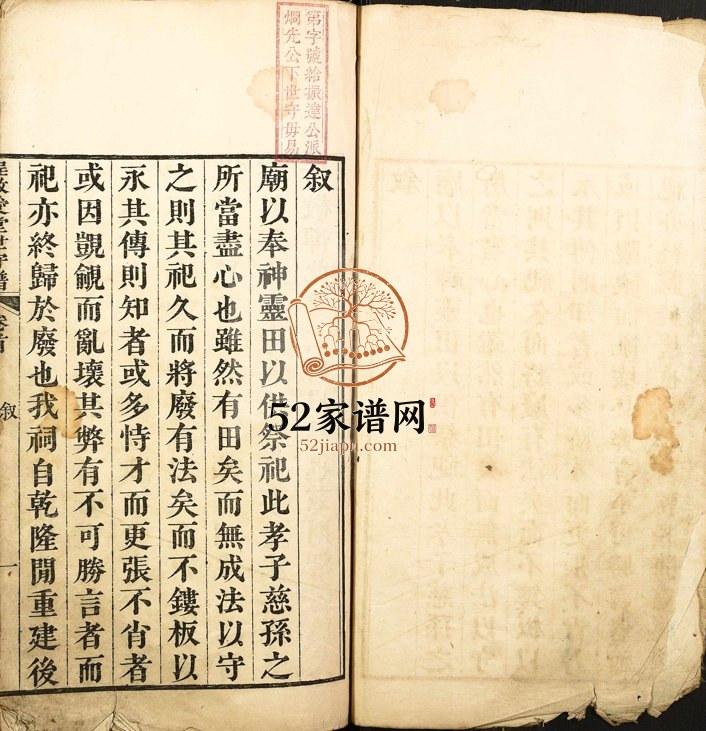 第字號給振達公派
烱先公下世守毋易
叙
廟以奉神靈田以供祭祀此孝子慈孫之
所當盡心也雖然有田矣而無成法以守
之則其祀久而將廢有法矣而不鏤板以
永其傳則知者或多恃才而更張不肖者
或因覬覦而亂壞其弊有不可勝言者而
祀亦終歸於廢也我祠自乾隆閒重建後
愛堂世守譜
卷首
叙
一
52家谱网
52jiapu.com